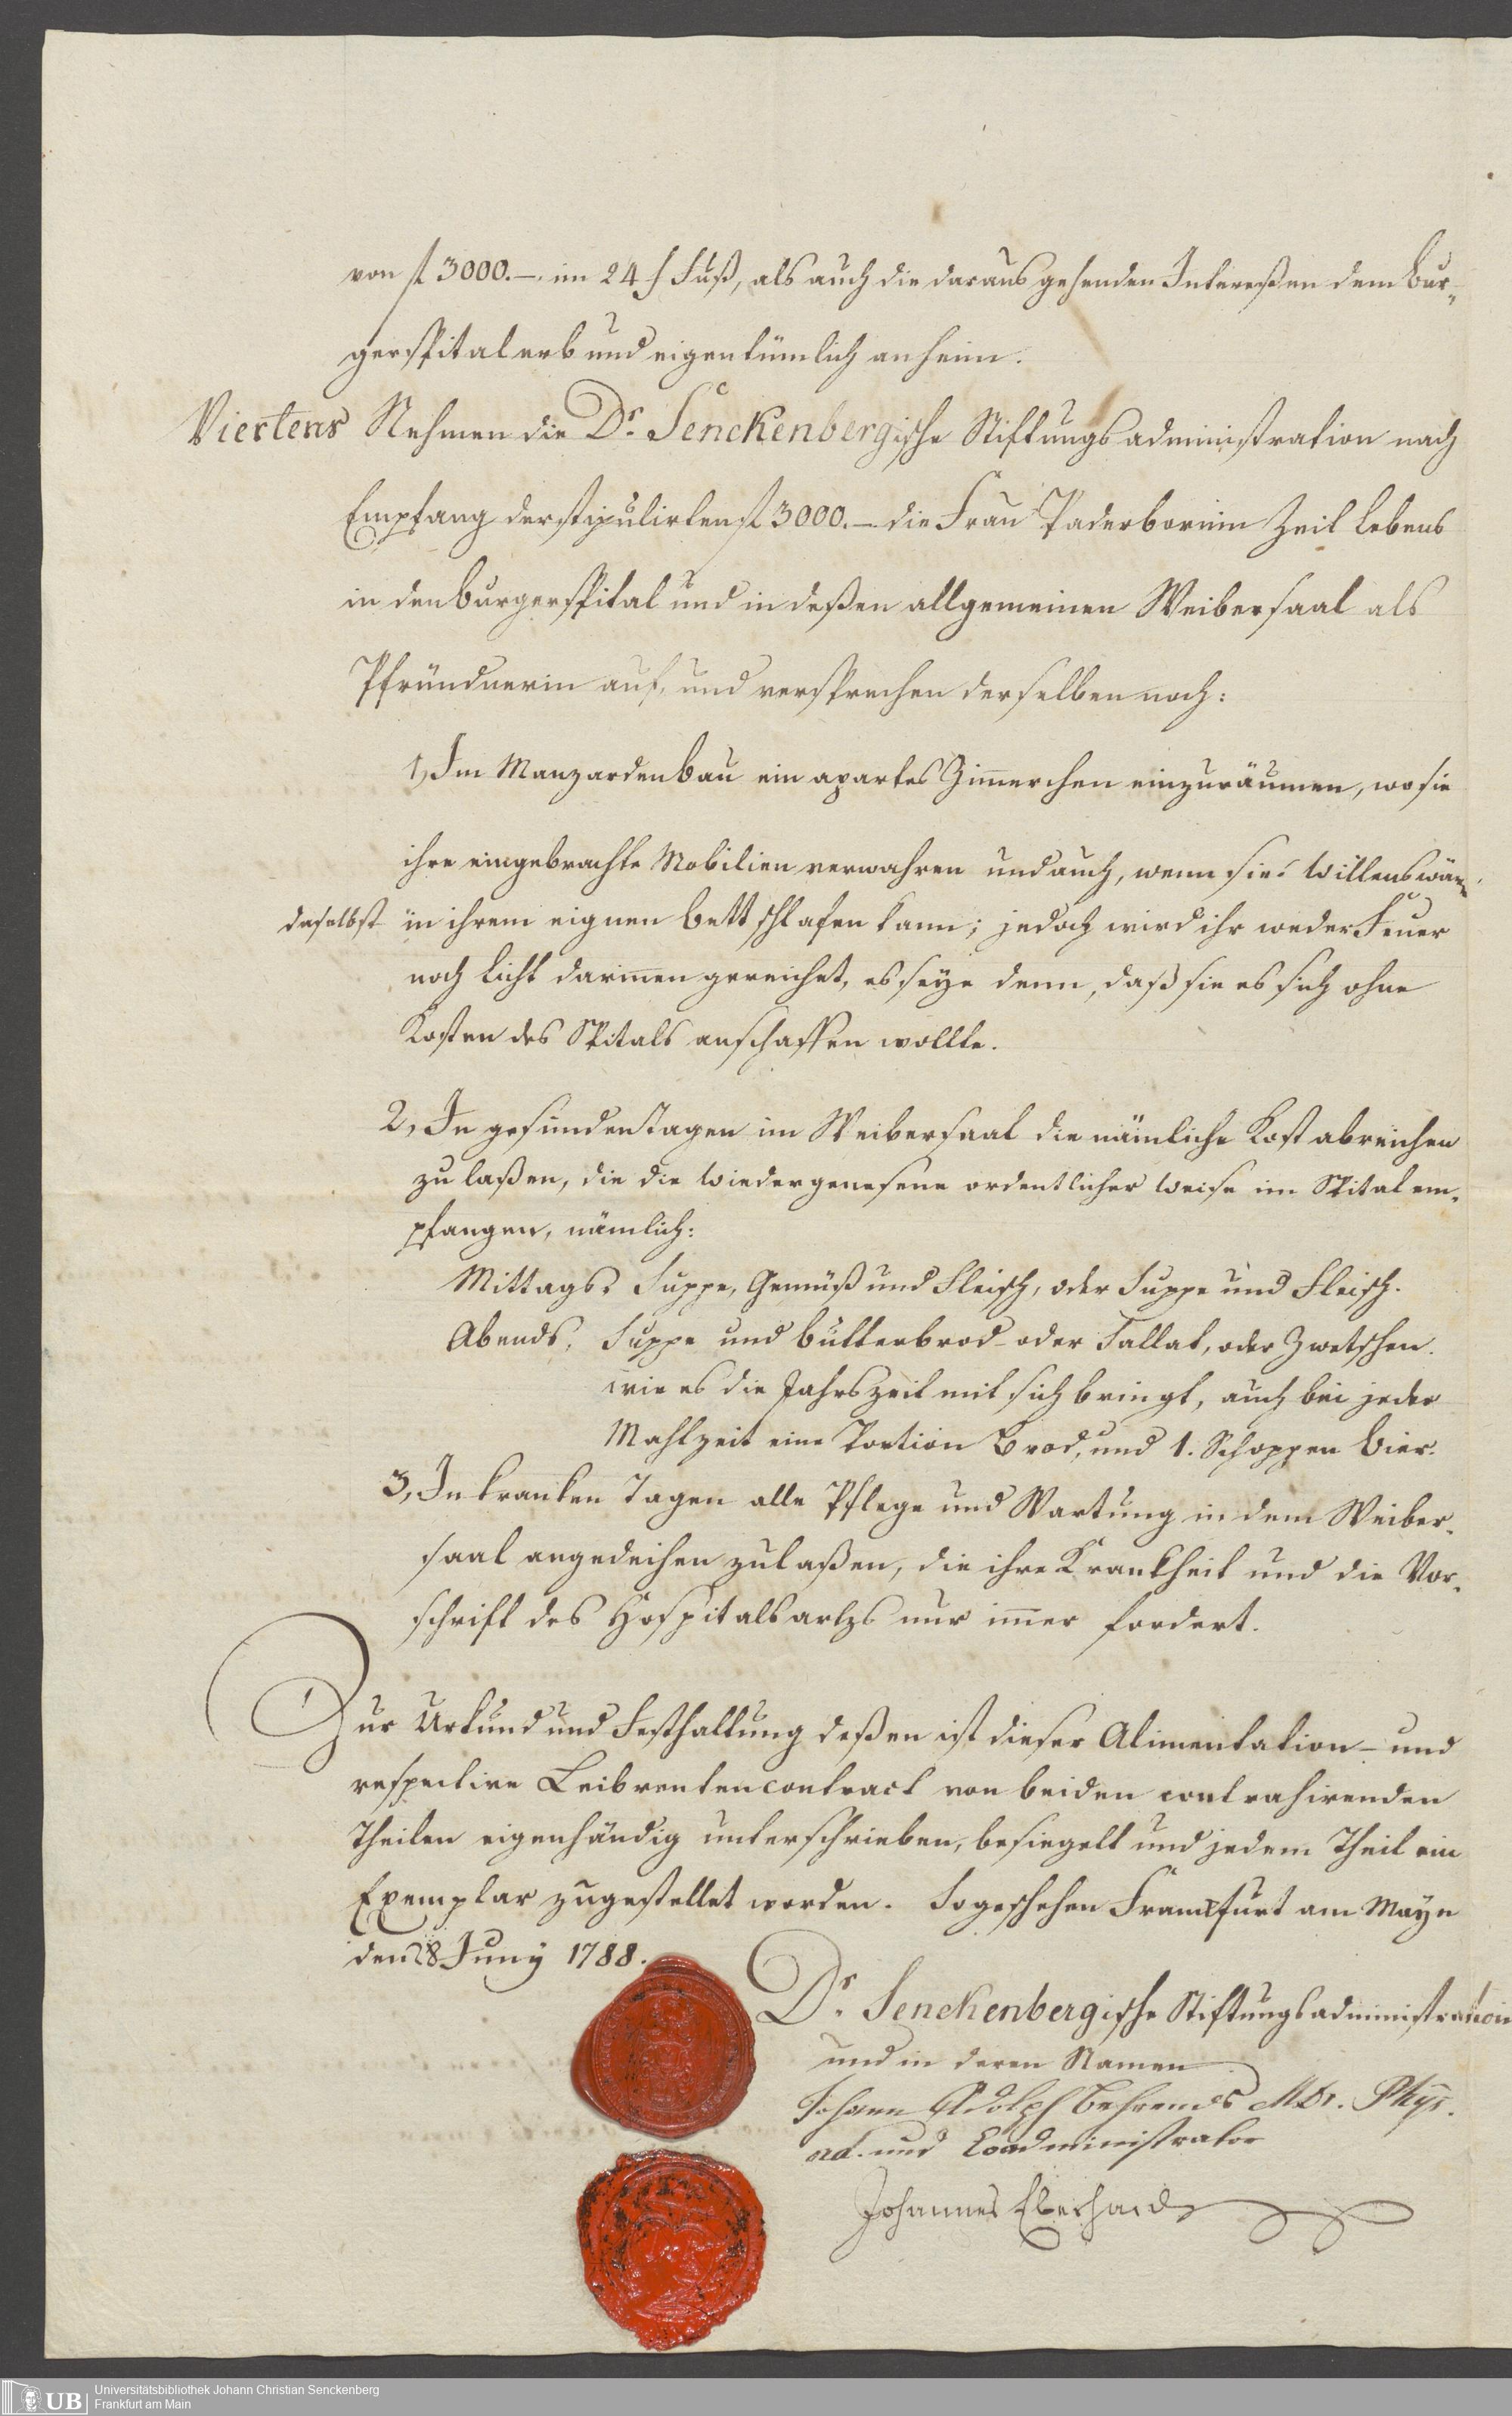 von fl 3000.–. im 24 f Fuß, als auch die daraus gehenden Intereßen dem Bur-
gerspital erb und eigentümlich anheim.
Viertens Nehmen die Dr. Senckenbergische Stiftungsadministration nach
Empfang der stipulirten fl 3000.– die Frau Paderbornin Zeit Lebens
in den Burgerspital und in deßen allgemeinen Weibersaal als
Pfründnerin auf, und versprechen derselben noch:
1, Im Manzardenbau ein apartes Zim̄erchen einzuräumen, wo sie
ihre eingebrachte Mobilien verwahren und auch, wenn sie Willens wäre
daselbst in ihrem eignen Bett schlafen kann; jedoch wird ihr weder Feuer
noch Licht darinnen gereichet, es seye denn, daß sie es sich ohne
Kosten des Spitals anschaffen wollte.
2, In gesunden Tagen im Weibersaal die nämliche Kost abreichen
zu laßen, die die Wiedergenesene ordentlicher Weise im Spital em-
pfangen, nämlich:
Mittags, Suppe, Gemüß und Fleisch, oder Suppe und Fleisch.
Abends, Suppe und Butterbrod oder Sallat, oder Zwetschen.
wie es die Jahrszeit mit sich bringt, auch bei jeder
Mahlzeit eine Portion Brod, und 1. Schoppen Bier.
3, In kranken Tagen alle Pflege und Wartung in dem Weiber-
saal angedeihen zu laßen, die ihre Krankheit und die Vor-
schrift des Hospitalsartzs nur im̄er fordert.
Zur Urkund und Festhaltung deßen ist dieser Alimentation- und
respective Leibrentencontract von beiden contrahirenden
Theilen eigenhändig unterschrieben, besiegelt und jedem Theil ein
Exemplar zugestellet worden. So geschehen Franckfurt am Mayn
den 28 Juny 1788.
Dr. Senckenbergische Stiftungsadministration
und in deren Namen
Johann Adolph Behrends MDr. Phys.
ord. und Coadministrator
Johannes Eberhard
UB Universitätsbibliothek Johann Christian Senckenberg
Frankfurt am Main